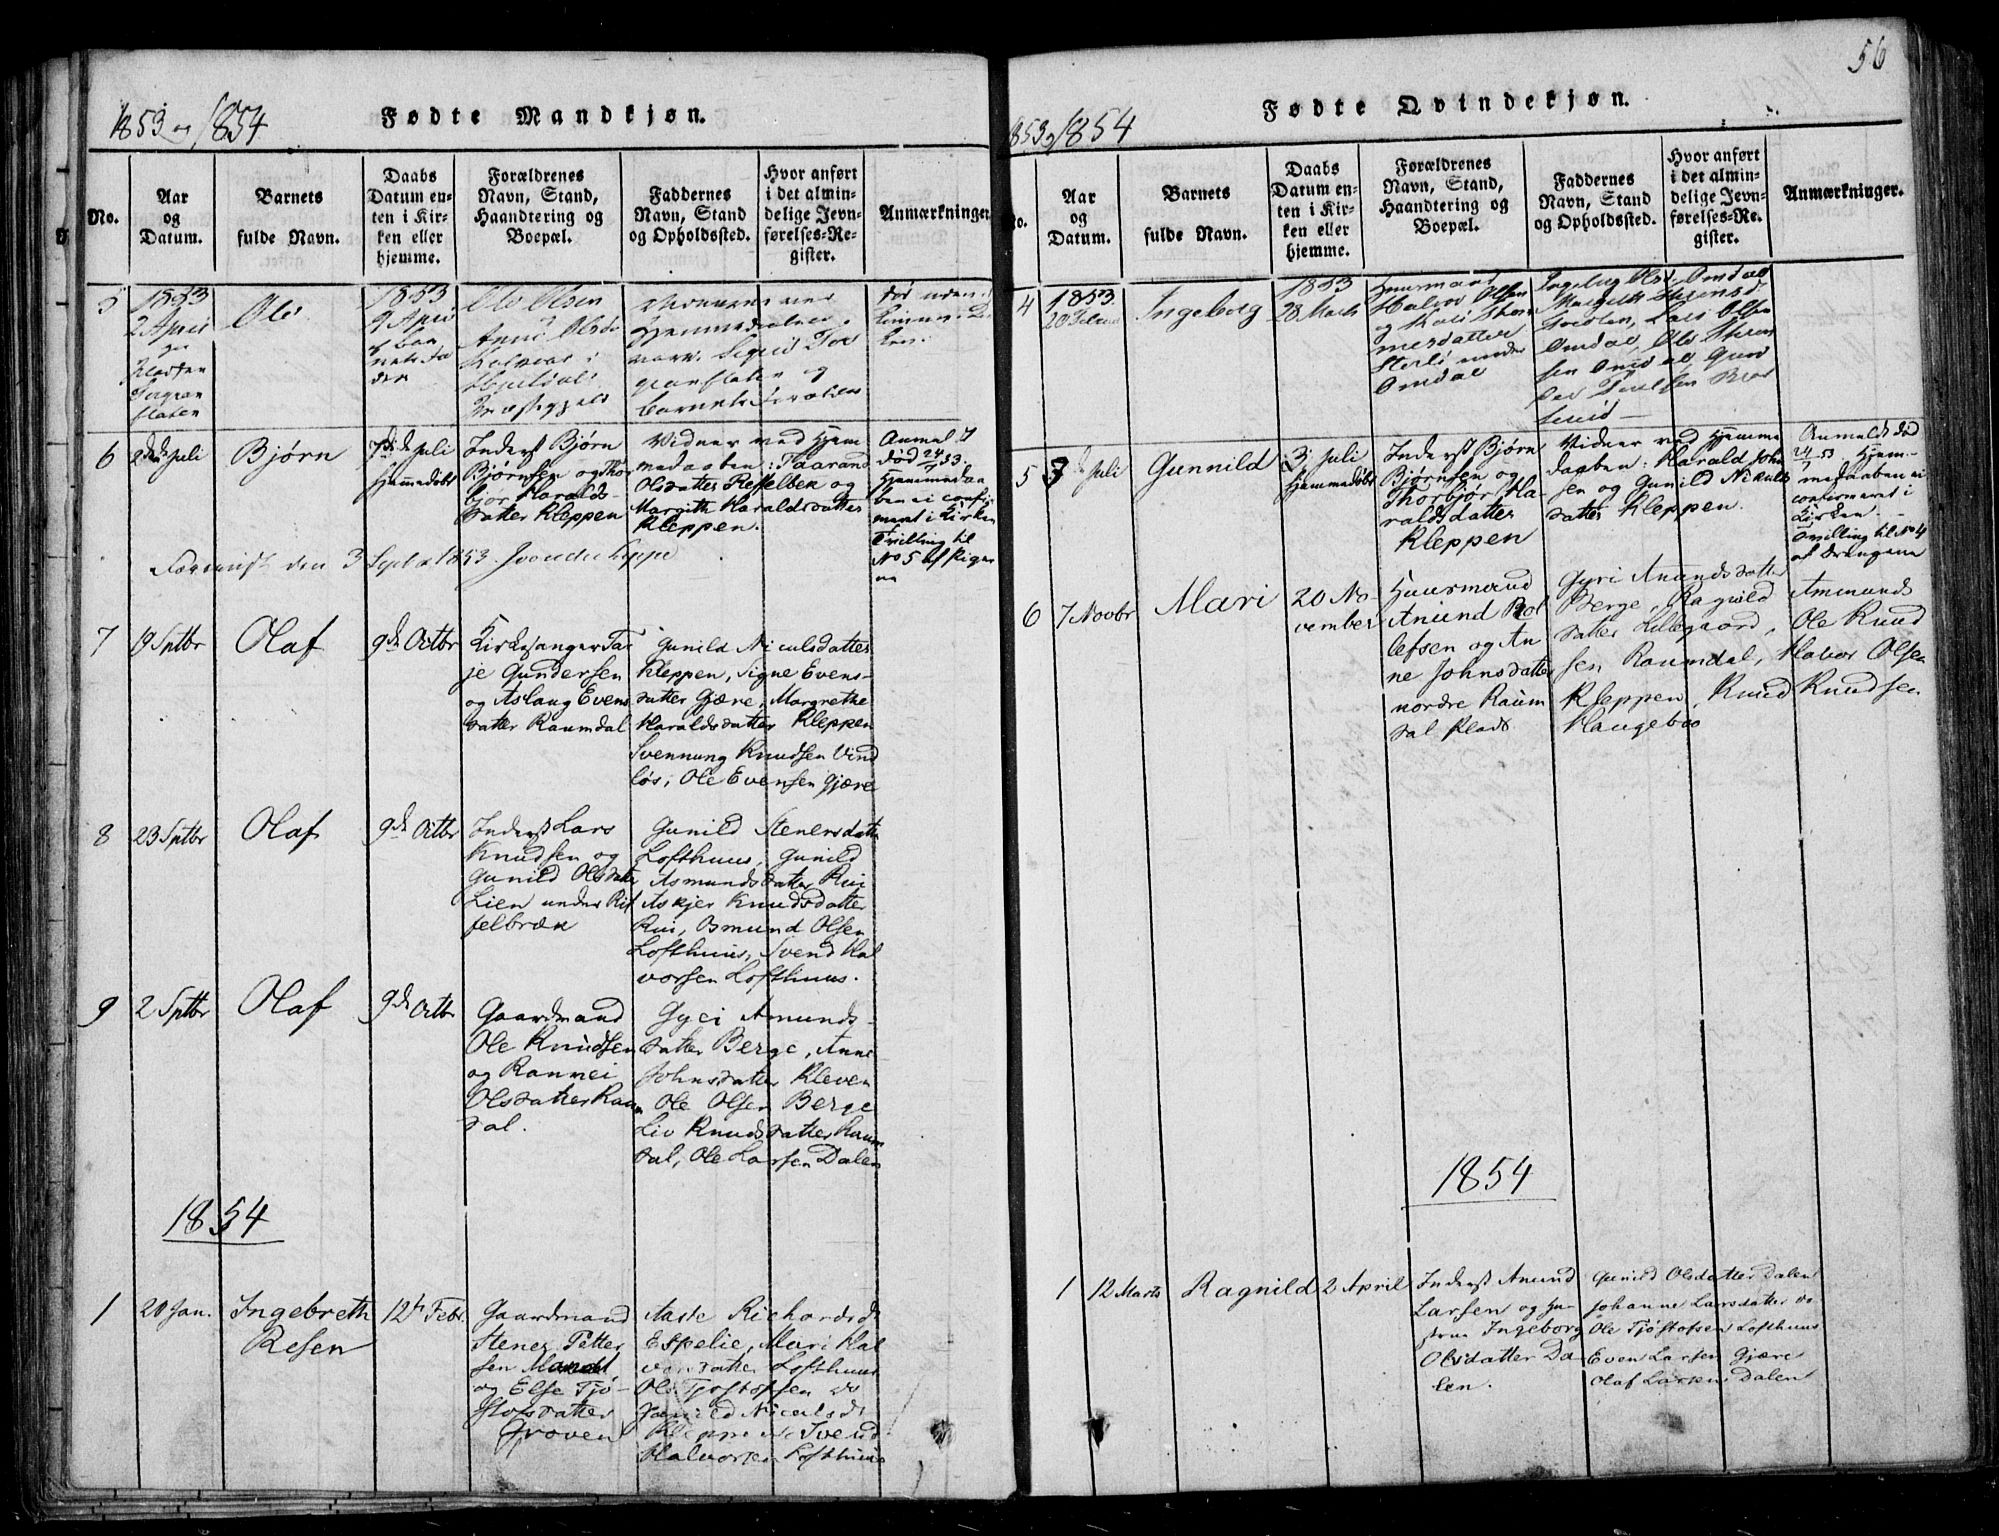 1853 og 1854
Fødte Mandkjøn.
No.
Aar
og
Datum.
Barnets
fulde Navn.
Daabs
Datum en-
ten i Kir-
ken eller
hjemme.
Forældrenes
Navn, Stand,
Haandtering og
Boepæl.
Faddernes
Navn, Stand
og Opholdssted.
Hvor anført
i det almin-
delige Jevn-
førelses-Re-
gister.
Anmærkninger.
5
1853
2 April
1853
9 April
Ole Olsen
Anne Olsdr
6
2den Juli
Bjørn
7de Juli
Hjemmedøbt
Inderst Bjørn
Bjørnsen og Thor
bjør Haralds-
datter Kleppen
Vidner ved Hjem
medaaben: Taaran
Olsdatter og
Margith Haraldsdatter
Kleppen.
Anmeldt
død 24/7 53.
Hjemmedaa
ben ei confir
meret i Kirken
Tvilling til
No 5 af Pigerne
den 3 Septbr 1853.
7
9 Sptbr
Olaf
9de Octbr
Kirkesanger Tar
je Gundersen
og Aslaug Evens
datter Raumdal
Gunild Niculsdatter
Kleppen, Signe Evens-
datter Gjære, Margrethe
Haraldsdatter Kleppen
Svennung Knudsen Vind
løs, Ole Evensen Gjære
8
23 Sptbr
Olaf
9de Octbr
Inderst Lars
Knudsen og
Gunild Olsdatter
Lien under Rif
felbræk
Gunild Stenersdatter
Lofthuus, Gunild
Asmundsdatter Rui
Askjer Knudsdatter
Rui, Osmund Olsen
Lofthuus, Svend Hal
vorsen Lofthuus.
9
2 Sptbr
Olaf
9de Octbr
Gaardmand
Ole Knudsen
og Ranvei
Olsdatter Raum
dal.
Gyri Amunds-
datter Berge, Anne
Johnsdatter Kleven
Ole Olsen Berge
Liv Knudsdatter Raum
dal, Ole Larsen Dalen
1854
1
20 Jan.
Ingebreth
Resen
12te Febr.
Gaardmand
Stener Petter
sen
og Else Tjø-
stolsdatter
Groven
Aaste Richardsd
Espelie, Mari Hal
vorsdatter Lofthuus
Ole Tjøstofsen do
Gunild Niculsd
Kleppen, Svend
Halvorsen Lofthuus
56
1853 og 1854
Fødte Qvindekjøn.
No.
Aar
og
Datum.
Barnets
fulde Navn.
Daabs
Datum en-
ten i Kir-
ken eller
hjemme.
Forældrenes
Navn, Stand,
Haandtering og
Boepæl.
Faddernes
Navn, Stand,
og Opholdssted.
Hvor anført
i det almin-
delige Jevn-
førelses-Re-
gister.
Anmærkninger.
4
1853
20 Februar
Ingeborg
1853
28 Marts
Huusmand
Halvor Olsen
og Kari
mesdatter
under
Omdal
Ingebug Olsd. Omdal
Omdal, Ole
sen Omdal
5
3 Juli
Gunnild
3 Juli
Hjemmedøbt
Inderst Bjørn
Bjørnsen og
Thorbjør Ha-
raldsdatter
Kleppen
Vidner ved Hjemme
daaben: Harald John
sen og Gunild Nikuls
datter Kleppen.
Anmeldt død
24/7 53. Hjem-
medaaben ei
confirmeret i
Kirken.
Tvilling til No 4
af Drengene
6
7 Novbr
Mari
20 No-
vember
Huusmand
Anund Rol
lefsen og An
ne Johnsdatter
nordre Raum
dal Plads
Gyri Anundsdatter
Berge, Ragnild Ammunds
datter Lillegaard, Ole Knud
sen Raumdal, Halvor Olsen
Kleppen, Knud Knudsen
Haugeboe
1854
1
12 Marts
Ragnild
2 April
Inderst Anund
Larsen og Hu-
strue Ingeborg
Olsdatter Da-
len.
Gunild Olsdatter Dalen
Johanne Larsdatter do
Ole Tjøstofsen Lofthuus
Even Larsen Gjære
Olaf Larsen Dalen